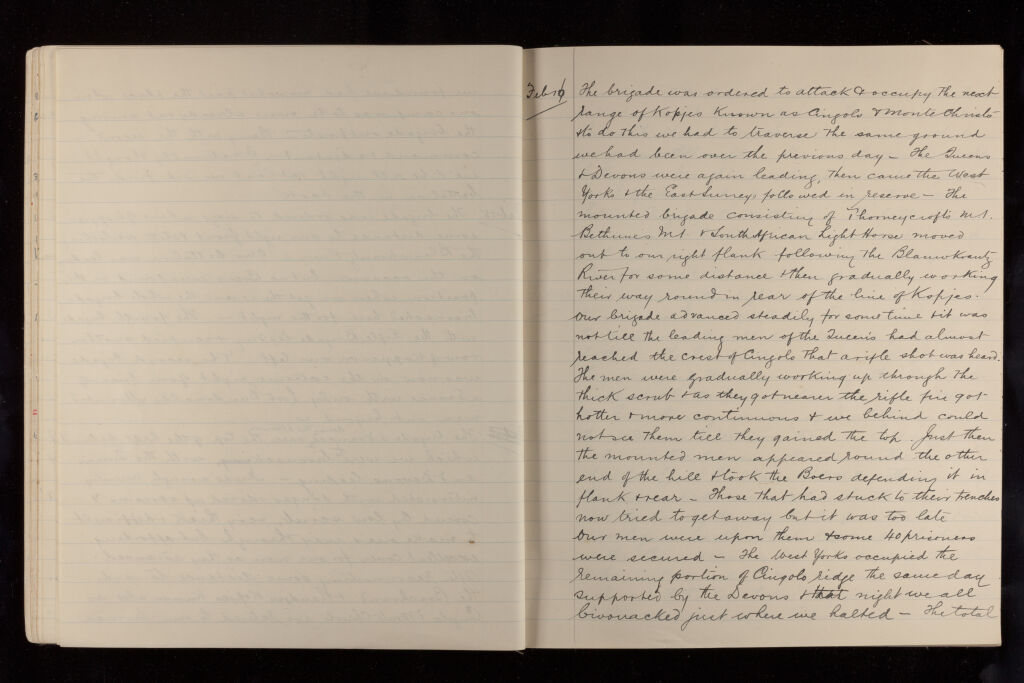 Feb 16 The brigade was ordered to attack & occupy the next
range of Kopjes known as Cingolo & Monte Christo
to do this we had to traverse the same ground
we had been over the previous day – The Queens
& Devons were again leading, then came the West
Yorks & the East Surreys followed in reserve – The
mounted brigade consisting of Thorneycrofts M.I.
Bethunes M.I. & South African Light Horse moved
out to our right flank following the Blauwkrantz
River for some distance & then gradually working
their way round in rear of the line of Kopjes.
Our brigade advanced steadily for some time & it was
not till the leading men of the Queen's had almost
reached the crest of Cingolo that a rifle shot was heard.
The men were gradually working up through the
thick scrub & as they got nearer the rifle fire got
hotter & more continuous & we behind could
not see them till they gained the top. Just then
the mounted men appeared round the other
end of the hill & took the Boers defending it in
flank & rear – Those that had stuck to their trenches
now tried to get away but it was too late
Our men were upon them & some 40 prisoners
were secured – The West Yorks occupied the
remaining portion of Cingolo ridge the same day
supported by the Devons & that night we all
bivouacked just where we halted – The total